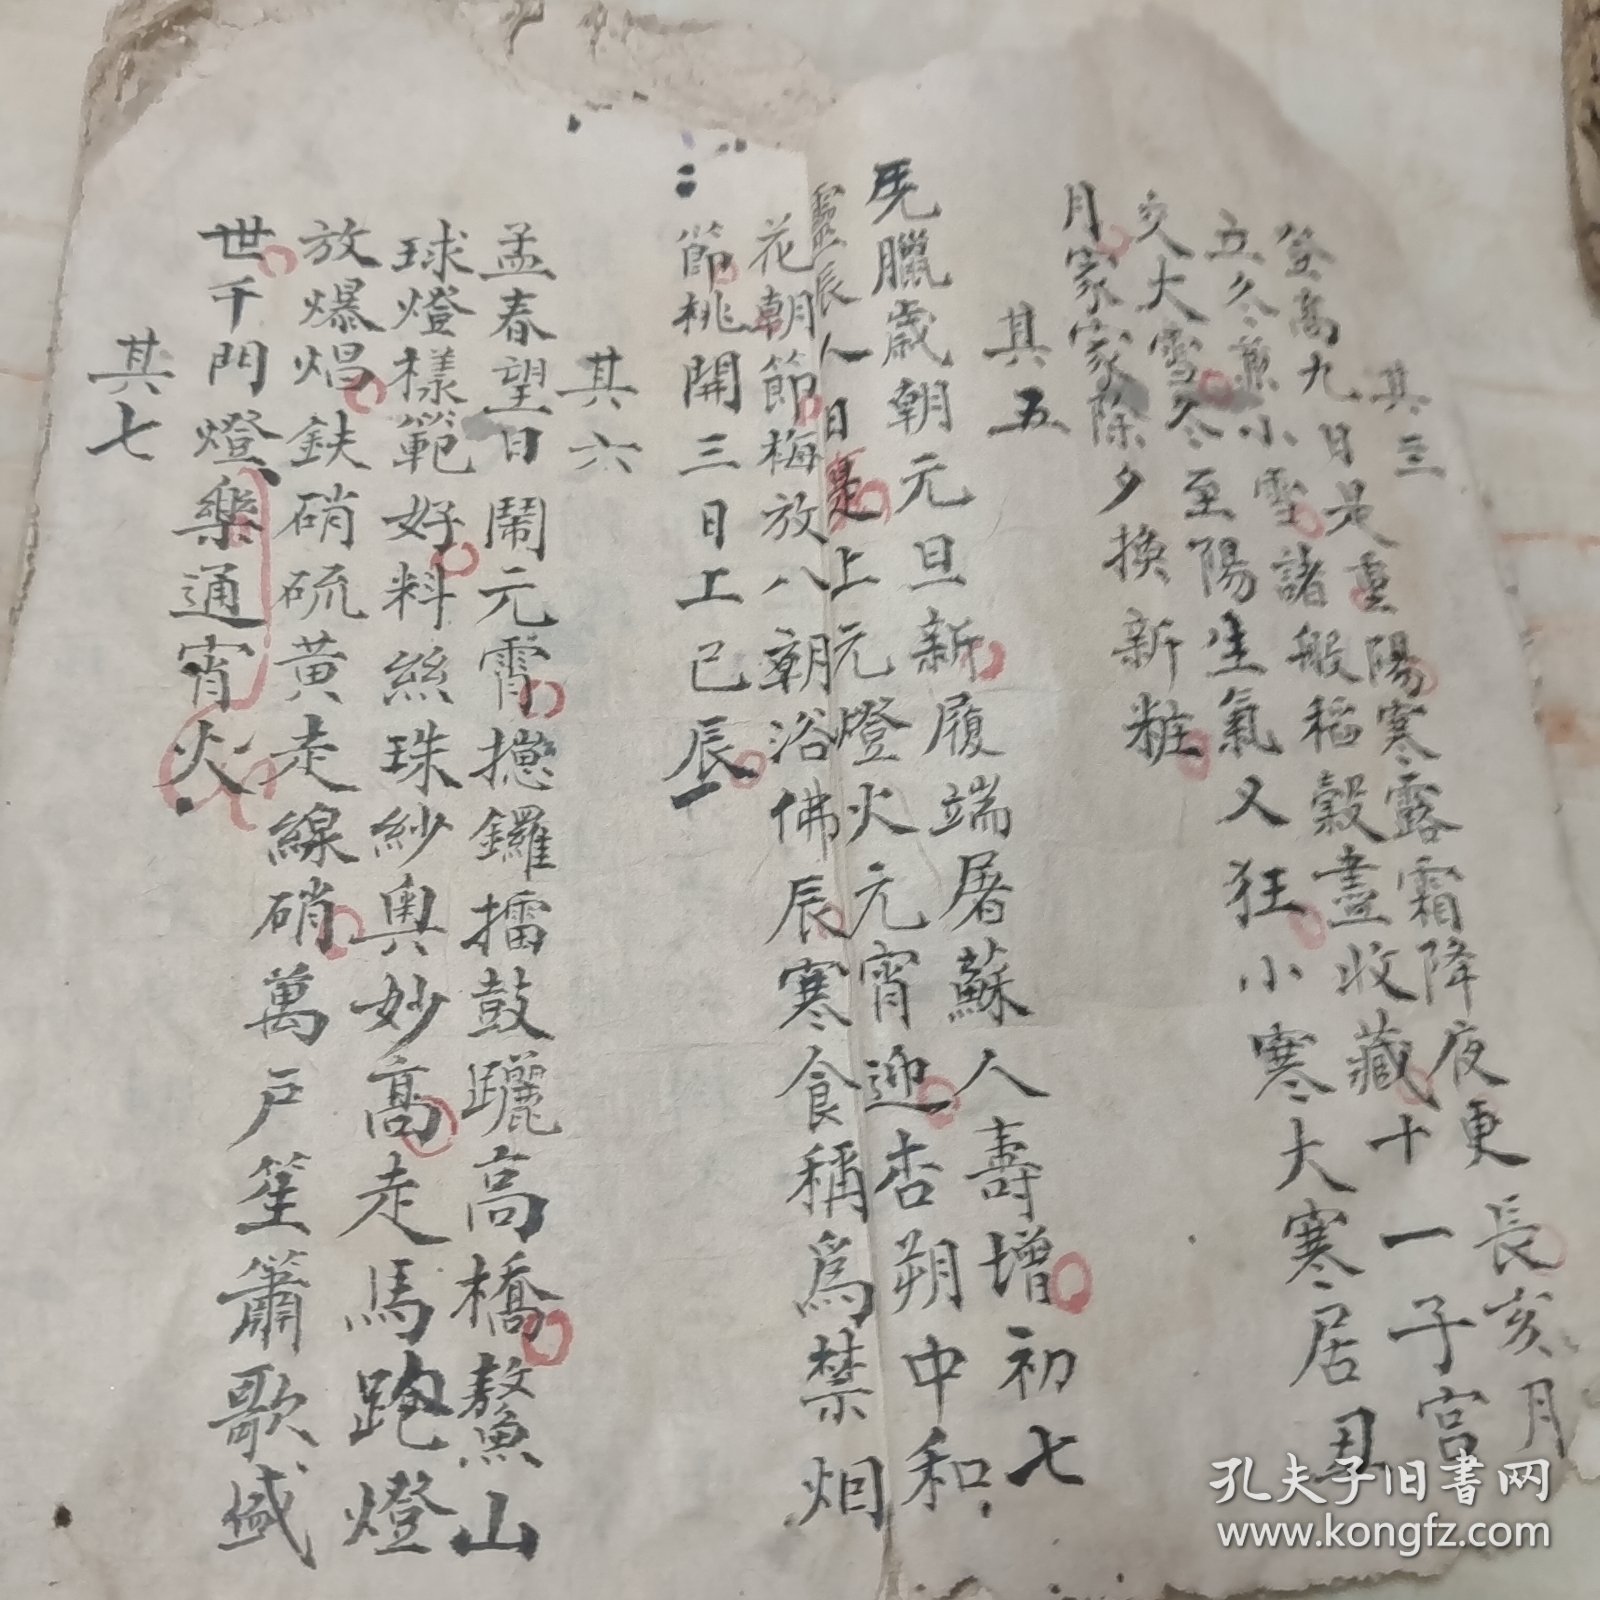 其三
登高九日是重陽寒露霜降夜更長亥月
立冬兼小雪諸般稻穀盡收藏十一子宮
交大雪冬至陽生氣又狂小寒大寒居丑
月家家除夕換新粧
其五
臘歲朝元旦新履端屠蘇人壽增初七
靈辰人日是上元燈火元宵迎杏朔中和
花朝節梅放八朝浴佛辰寒食稱為禁烟
節桃開三日工已辰
其六
孟春望日鬧元霄摠鑼擂鼓躧高橋鰲山
球燈樣範好料絲珠紗奧妙高走馬跑燈
放爆焻鈇硝硫黃走線硝萬戶笙簫歌盛
世千門燈樂通宵火
其七
孔夫子旧书网
www.kongfz.com